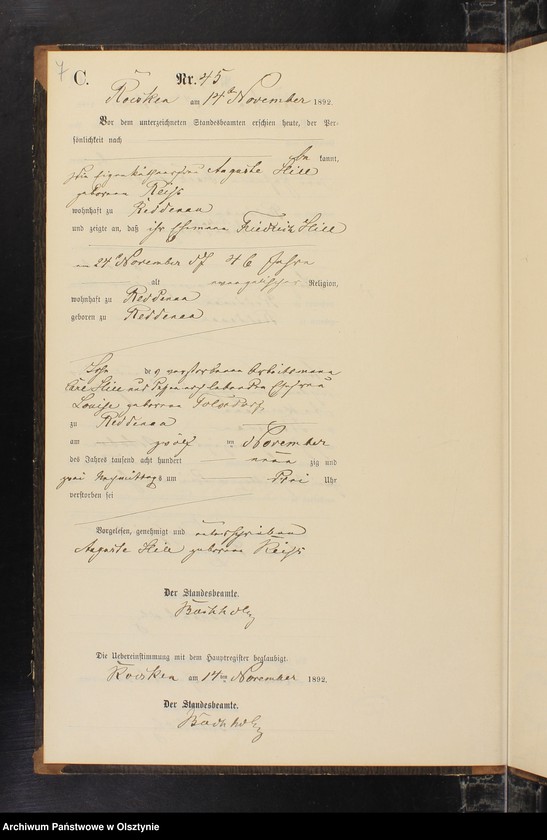 7
C.
Nr. 45
am 14ten November 1892.
Vor dem unterzeichneten Standesbeamten erschien heute, der Per-
sönlichkeit nach
kannt,
Auguste Hill
geborene Reiß
wohnhaft zu Reddenau
und zeigte an, daß ihr Ehemann Friedrich Hill
24 November 46 Jahre
alt evangelischer Religion,
wohnhaft zu Reddenau
geboren zu Reddenau
Sohn des verstorbenen Arbeitsmann
Carl Hill und Ehefrau
Louise geborene
zu Reddenau
am zwölf ten November
des Jahres tausend acht hundert neun zig und
zwei Nachmittags um Uhr
verstorben sei
Vorgelesen, genehmigt und unterschrieben
Auguste Hill geborene Reiß
Der Standesbeamte.
Die Uebereinstimmung mit dem Hauptregister beglaubigt.
am 14ten November 1892.
Der Standesbeamte.
Archiwum Państwowe w Olsztynie